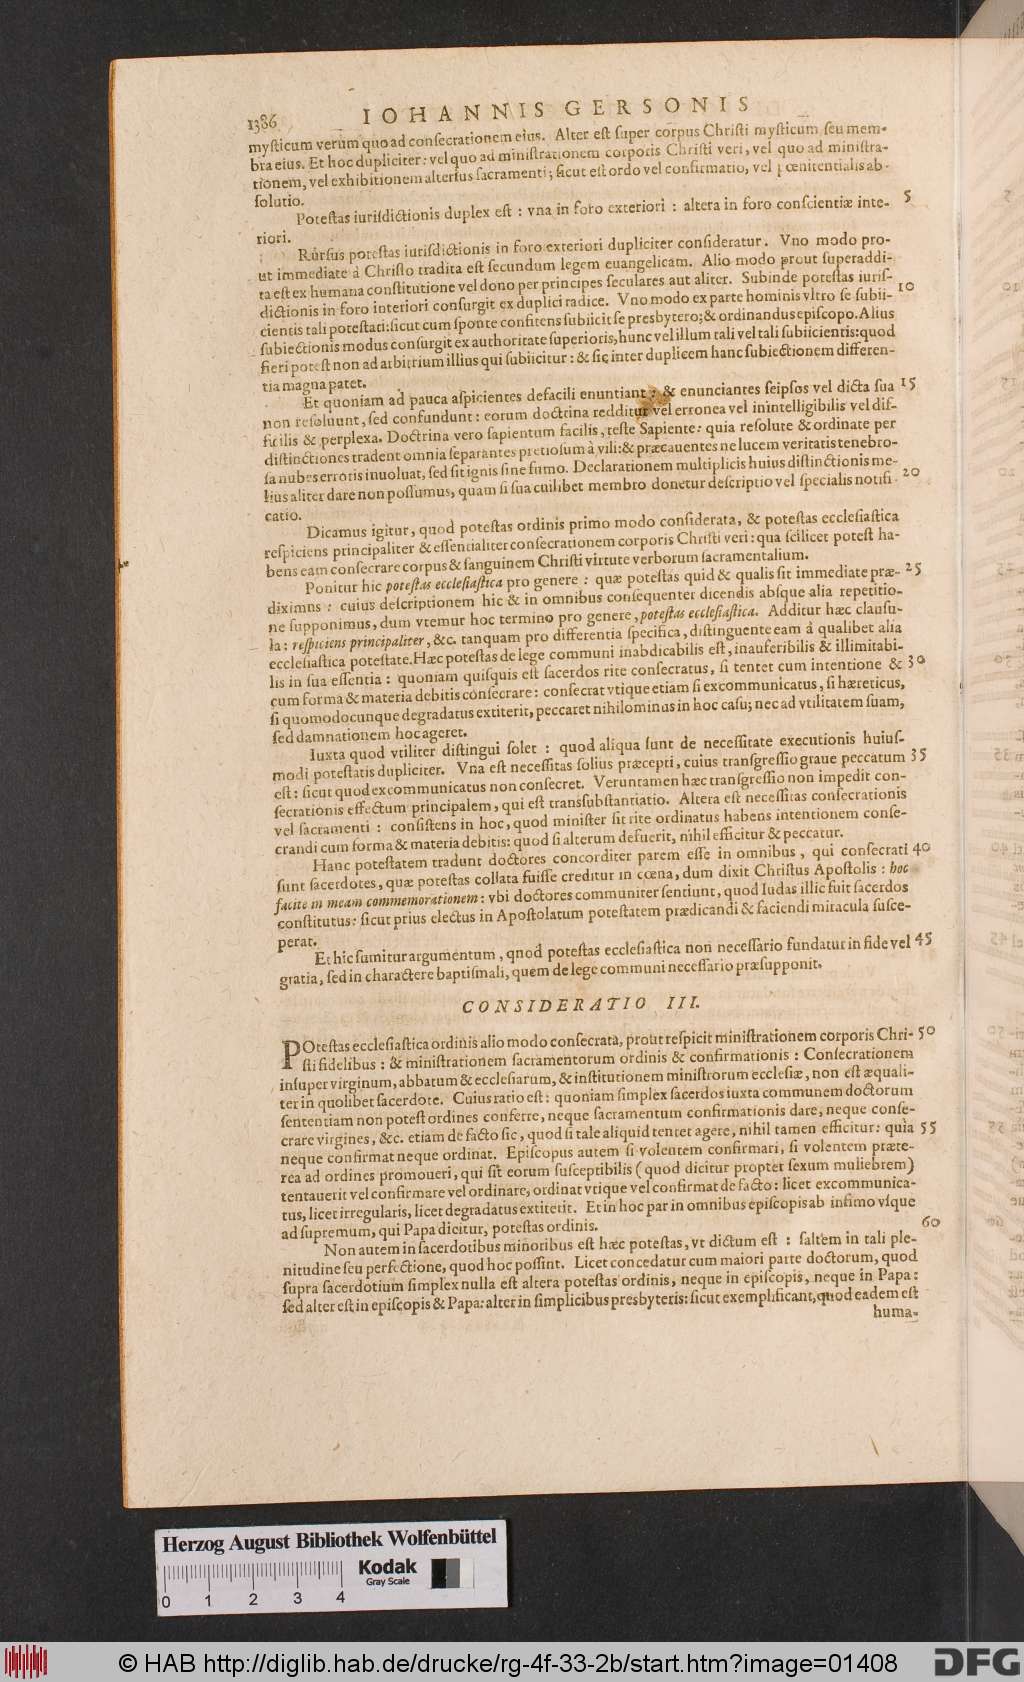 1386
IOHANNIS GERSONIS
mysticum verum quo ad consecrationem eius. Alter est super corpus Christi mysticum seu mem-
bra eius. Et hoc dupliciter: vel quo ad ministrationem corporis Christi veri, vel quo ad ministra-
tionem, vel exhibitionem alterius sacramenti; sicut est ordo vel confirmatio, vel pœnitentialis ab-
solutio.
Potestas iurisdictionis duplex est : vna in foro exteriori : altera in foro conscientiæ inte- 5
riori.
Rursus potestas iurisdictionis in foro exteriori dupliciter consideratur. Vno modo pro-
ut immediate à Christo tradita est secundum legem euangelicam. Alio modo prout superaddi-
ta est ex humana constitutione vel dono per principes seculares aut aliter. Subinde potestas iuris-
dictionis in foro interiori consurgit ex duplici radice. Vno modo ex parte hominis vltro se subii- 10
cientis tali potestati: sicut cum sponte confitens subiicit se presbytero; & ordinandus episcopo. Alius
subiectionis modus consurgit ex authoritate superioris, hunc vel illum tali vel tali subiicientis: quod
fieri potest non ad arbitrium illius qui subiicitur : & sic inter duplicem hanc subiectionem differen-
tia magna patet.
Et quoniam ad pauca aspicientes defacili enuntiant : & enunciantes seipsos vel dicta sua 15
non resoluunt, sed confundunt : eorum doctrina redditur vel erronea vel inintelligibilis vel dif-
ficilis & perplexa. Doctrina vero sapientum facilis, teste Sapiente: quia resolute & ordinate per
distinctiones tradent omnia separantes pretiosum à vili: & præcauentes ne lucem veritatis tenebro-
sa nubes erroris inuoluat, sed sit ignis sine fumo. Declarationem multiplicis huius distinctionis me-
lius aliter dare non possumus, quam si sua cuilibet membro donetur descriptio vel specialis notifi- 20
catio.
Dicamus igitur, quod potestas ordinis primo modo considerata, & potestas ecclesiastica
respiciens principaliter & essentialiter consecrationem corporis Christi veri : qua scilicet potest ha-
bens eam consecrare corpus & sanguinem Christi virtute verborum sacramentalium.
Ponitur hic potestas ecclesiastica pro genere : quæ potestas quid & qualis sit immediate præ- 25
diximus : cuius descriptionem hic & in omnibus consequenter dicendis absque alia repetitio-
ne supponimus, dum vtemur hoc termino pro genere, potestas ecclesiastica. Additur hæc clausu-
la: respiciens principaliter, &c. tanquam pro differentia specifica, distinguente eam à qualibet alia
ecclesiastica potestate. Hæc potestas de lege communi inabdicabilis est, inauferibilis & illimitabi-
lis in sua essentia : quoniam quisquis est sacerdos rite consecratus, si tentet cum intentione & 30
cum forma & materia debitis consecrare : consecrat vtique etiam si excommunicatus, si hæreticus,
si quomodocunque degradatus extiterit, peccaret nihilominus in hoc casu; nec ad vtilitatem suam,
sed damnationem hoc ageret.
Iuxta quod vtiliter distingui solet : quod aliqua sunt de necessitate executionis huius-
modi potestatis dupliciter. Vna est necessitas solius præcepti, cuius transgressio graue peccatum 35
est : sicut quod excommunicatus non consecret. Veruntamen hæc transgressio non impedit con-
secrationis effectum principalem, qui est transsubstantiatio. Altera est necessitas consecrationis
vel sacramenti : consistens in hoc, quod minister sit rite ordinatus habens intentionem conse-
crandi cum forma & materia debitis: quod si alterum defuerit, nihil efficitur & peccatur.
Hanc potestatem tradunt doctores concorditer parem esse in omnibus, qui consecrati 40
sunt sacerdotes, quæ potestas collata fuisse creditur in cœna, dum dixit Christus Apostolis : hoc
facite in meam commemorationem : vbi doctores communiter sentiunt, quod Iudas illic fuit sacerdos
constitutus: sicut prius electus in Apostolatum potestatem prædicandi & faciendi miracula susce-
perat.
Et hic sumitur argumentum, qnod potestas ecclesiastica non necessario fundatur in fide vel 45
gratia, sed in charactere baptismali, quem de lege communi necessario præsupponit.
CONSIDERATIO III.
POtestas ecclesiastica ordinis alio modo consecrata, prout respicit ministrationem corporis Chri- 50
sti fidelibus : & ministrationem sacramentorum ordinis & confirmationis : Consecrationem
insuper virginum, abbatum & ecclesiarum, & institutionem ministrorum ecclesiæ, non est æquali-
ter in quolibet sacerdote. Cuius ratio est : quoniam simplex sacerdos iuxta communem doctorum
sententiam non potest ordines conferre, neque sacramentum confirmationis dare, neque conse-
crare virgines, &c. etiam de facto sic, quod si tale aliquid tentet agere, nihil tamen efficitur: quia 55
neque confirmat neque ordinat. Episcopus autem si volentem confirmari, si volentem præte-
rea ad ordines promoueri, qui sit eorum susceptibilis (quod dicitur propter sexum muliebrem)
tentauerit vel confirmare vel ordinare, ordinat vtique vel confirmat de facto : licet excommunica-
tus, licet irregularis, licet degradatus extiterit. Et in hoc par in omnibus episcopis ab infimo vsque
ad supremum, qui Papa dicitur, potestas ordinis. 60
Non autem in sacerdotibus minoribus est hæc potestas, vt dictum est : saltem in tali ple-
nitudine seu perfectione, quod hoc possint. Licet concedatur cum maiori parte doctorum, quod
supra sacerdotium simplex nulla est altera potestas ordinis, neque in episcopis, neque in Papa:
sed alter est in episcopis & Papa: alter in simplicibus presbyteris: sicut exemplificant, quod eadem est
huma-
Herzog August Bibliothek Wolfenbüttel
Kodak
Gray Scale
0 1 2 3 4
© HAB http://diglib.hab.de/drucke/rg-4f-33-2b/start.htm?image=01408
DFG